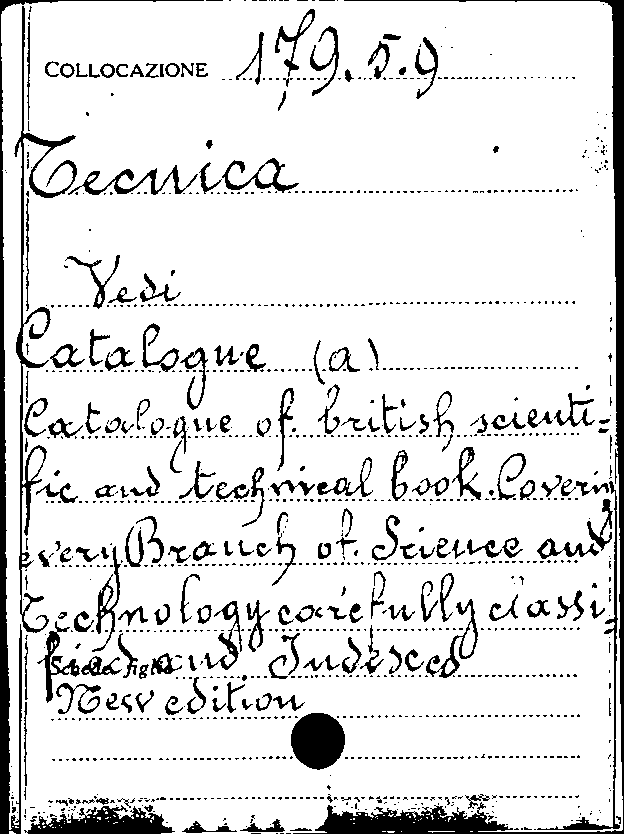 COLLOCAZIONE 179.5.9
Tecnica
Vedi
Catalogue (a)
Catalogue of british scienti=
fic and technical book. Coverin
every Branch of Science and
Technology carefully classi=
fied and Indexed
New edition